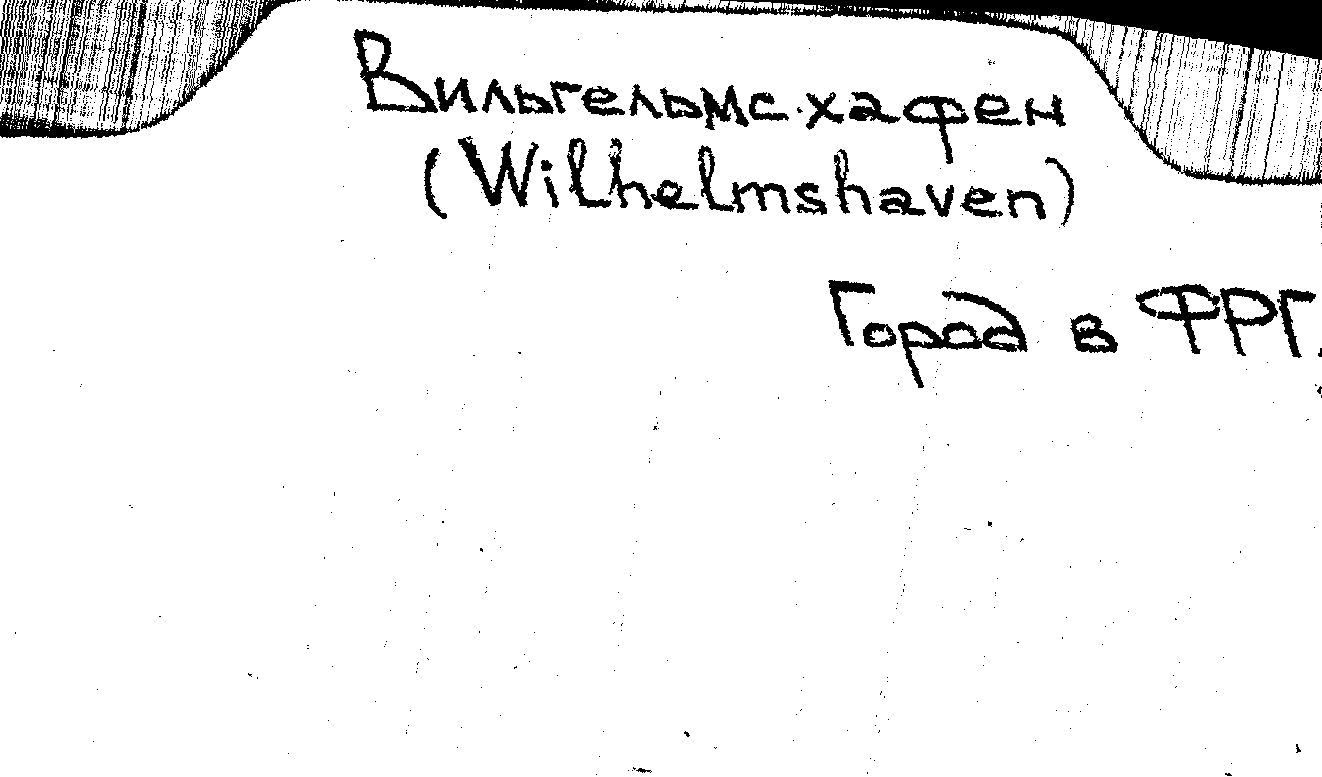 Вильгельмсхафен
(Wilhelmshaven)
Город в ФРГ.